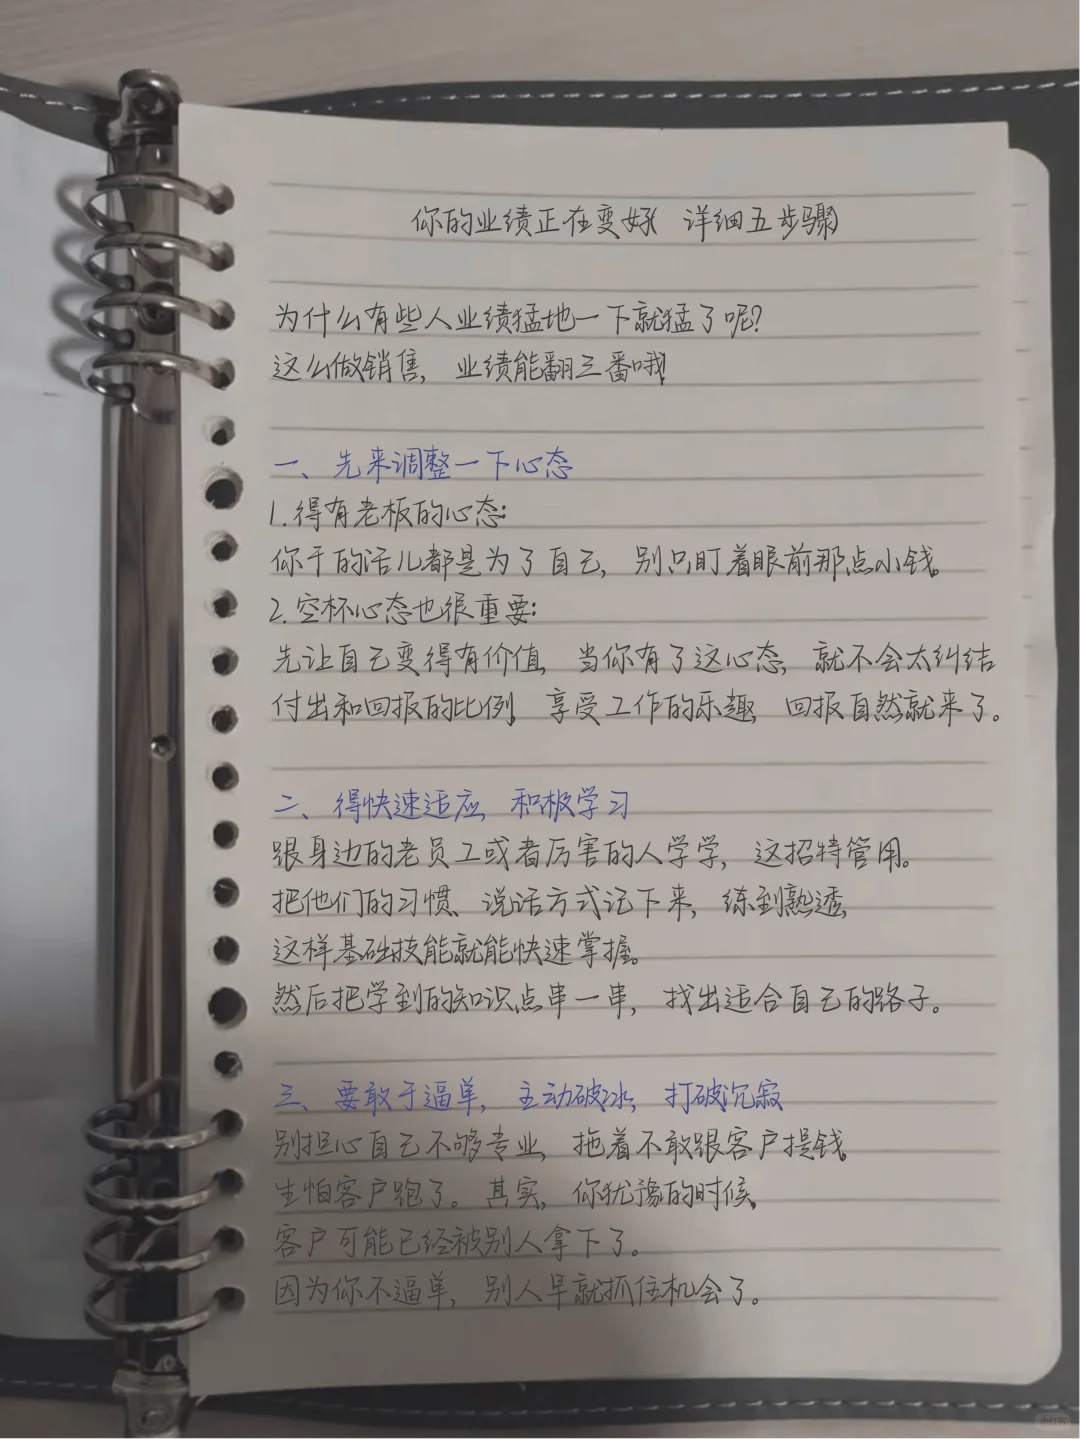 你的业绩正在变好 详细五步骤
为什么有些人业绩猛地一下就猛了呢?
这么做销售，业绩能翻三番哦!
一、先来调整一下心态
1.得有老板的心态:
你干的活儿都是为了自己，别只盯着眼前那点小钱。
2.空杯心态也很重要:
先让自己变得有价值，当你有了这心态，就不会太纠结
付出和回报的比例，享受工作的乐趣，回报自然就来了。
二、得快速适应，积极学习
跟身边的老员工或者厉害的人学学，这招特管用。
把他们的习惯、说话方式记下来，练到熟透，
这样基础技能就能快速掌握。
然后把学到的知识点串一串，找出适合自己的路子。
三、要敢于逼单，主动破冰，打破沉寂
别担心自己不够专业，拖着不敢跟客户提钱。
生怕客户跑了。其实，你犹豫的时候，
客户可能已经被别人拿下了。
因为你不逼单，别人早就抓住机会了。